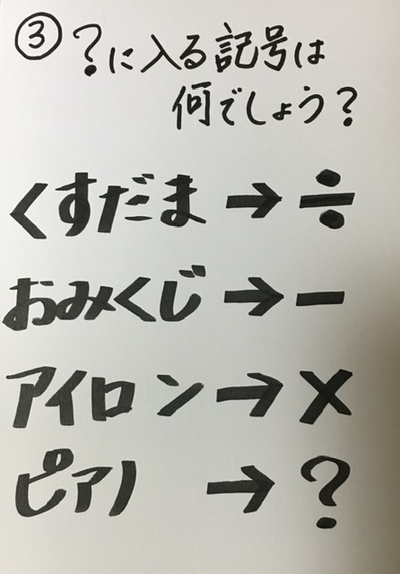 ③ ?に入る記号は
何でしょう?
くすだま→÷
おみくじ→−
アイロン→×
ピアノ →?